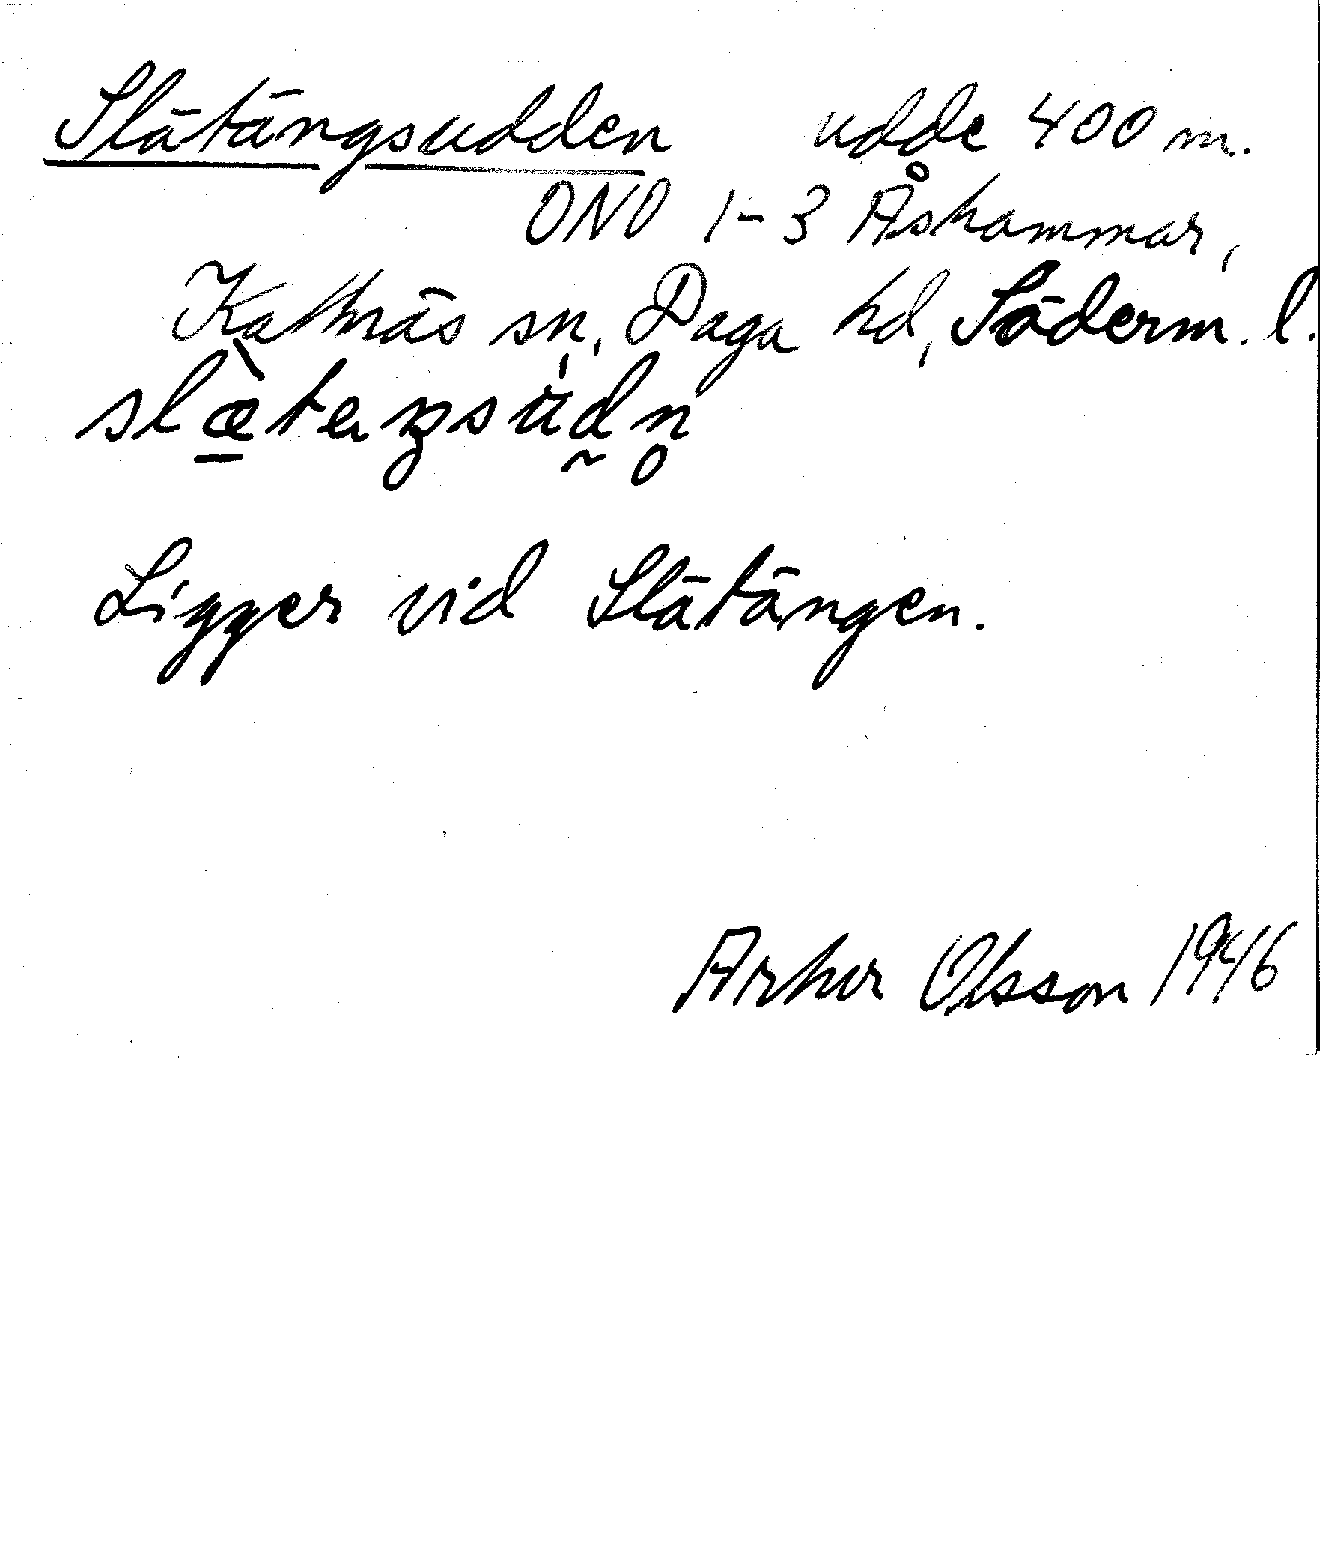 Slätängsudden udde 400 m.
ONO 1-3 Åshammar,
Kattnäs sn, Daga hd, Söderm. l.
Ligger vid Slätängen.
Arthur Olsson 1946